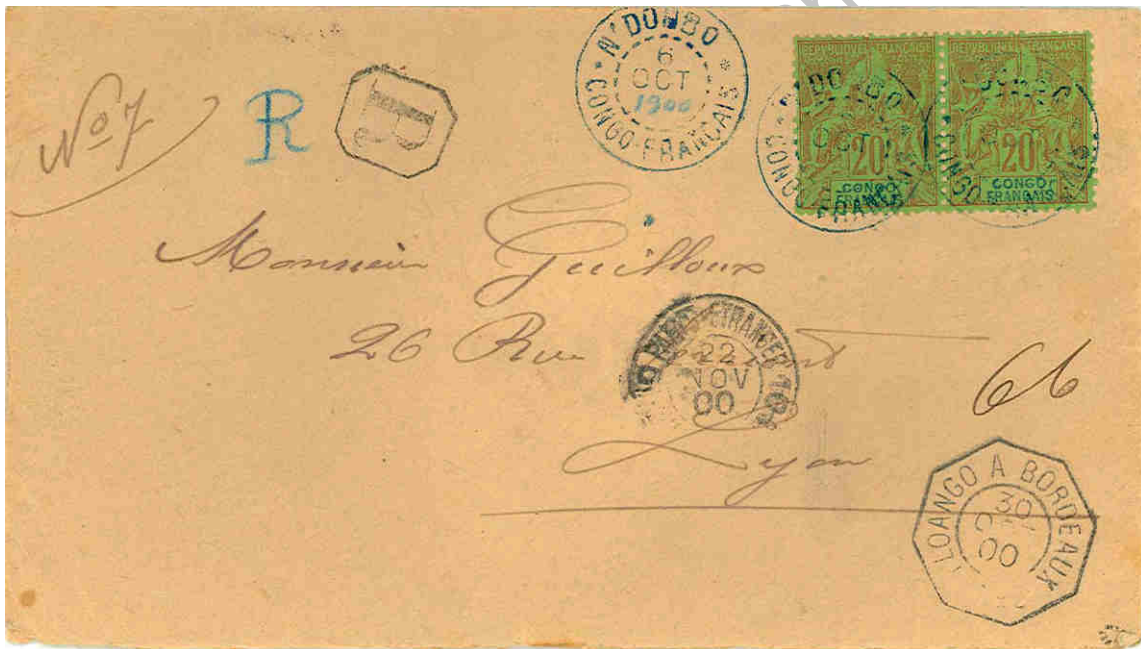 N'DOMBO
6
OCT
1900
CONGO-FRANÇAIS
REPUBLIQUE FRANÇAISE
20
CONGO
FRANÇAIS
REPUBLIQUE FRANÇAISE
20
CONGO
FRANÇAIS
No 7
R
R
Monsieur Guilloux
26 Rue
ETRANGER
22
NOV
00
66
Lyon
LOANGO A BORDEAUX
30
00